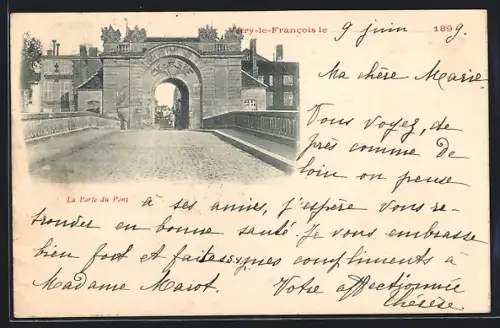 Vitry-le-François le 9 juin 1899.
Ma chère Marie
Vous voyez, de
près comme de
loin on pense
La Porte du Pont
à ses amies, j'espère vous re-
trouver en bonne santé. Je vous embrasse
bien fort et faites mes compliments à
Madame Marot. Votre affectionnée
Thérèse.